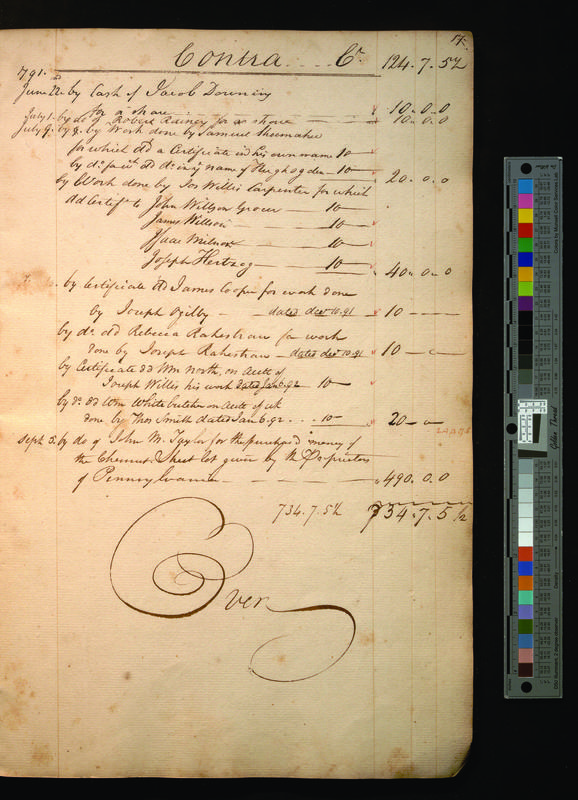 17.
Contra .... Cr. 124.7.5½
1791.
June 22. by Cash of Jacob Downing
for a share 10.0.0
July 1. by do of Robert Rainey for a share 10.0.0
July 9. by 8. by Work done by Samuel Shoemaker
for which dd a Certificate in his own name 10
by do. for wh. dd do. in ye name of Hugh Ogden 10 20.0.0
by Work done by Jos Willis Carpenter for which
dd Certif. to John Willson Grocer 10
James Willson 10
Isaac Milnor 10
Joseph Hertzog 10 40.0.0
by Certificate dd James Cooper for work done
by Joseph Ogilby dated decr 10.91 10
by do. dd Rebecca Rakestraw for work
done by Joseph Rakestraw dated decr 10.91 10
by Certificate dd Wm North, on acct of
Joseph Willis his work dated Jan 6.92 10
by do. dd Wm White butcher on acct of wk
done by Thos Smith dated Jan 6.92 10 20
Sept. 5. by do of John M. Taylor for the purchase money of
the Chesnut Street lot given by the Proprietors
of Pennsylvania 490.0.0
734.7.5½ 734.7.5½
Over